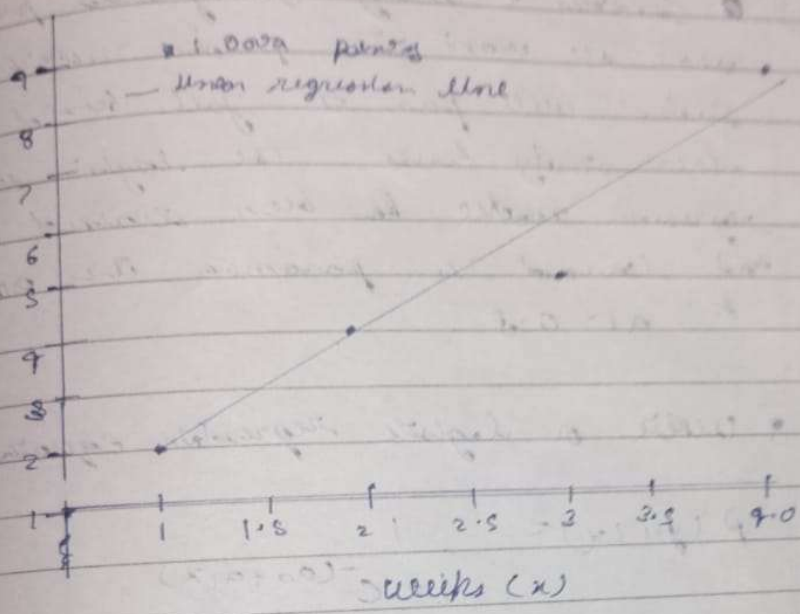 1. Data points
— linear regression line
9
8
7
6
5
4
3
2
1
1 1.5 2 2.5 3 3.5 4.0
weeks (x)